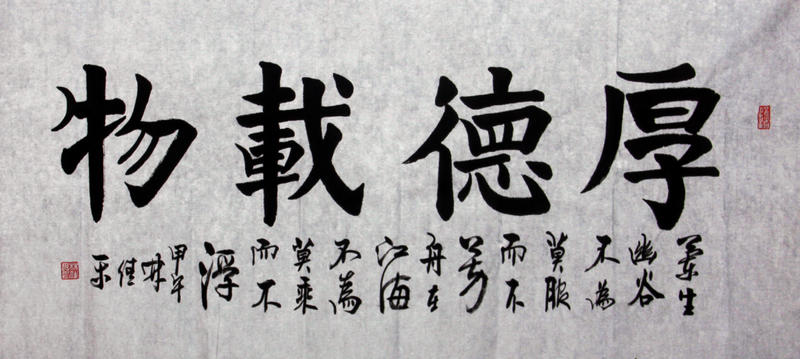 厚德載物
蘭生
幽谷
不為
莫服
而不
芳
舟在
江海
不為
莫乘
而不
浮
甲午
佳